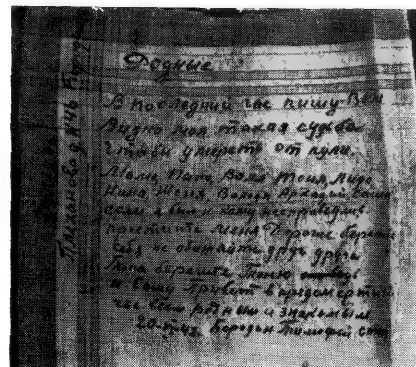 Родные
В последний час пишу Вам
Видно моя такая судьба
чтоби умереть от пули.
Мама, Папа Валя Тоня, Лида
Нина, Женя, Володя Аркадий
если я был к кому несправедлив
простите меня Дорогие берегите
себя не обижайте друг друга
Папа берегите Тоню
и Вашу Привет в предсмертный
час всем родным и знакомым
20- 42 Бородин Тимофей